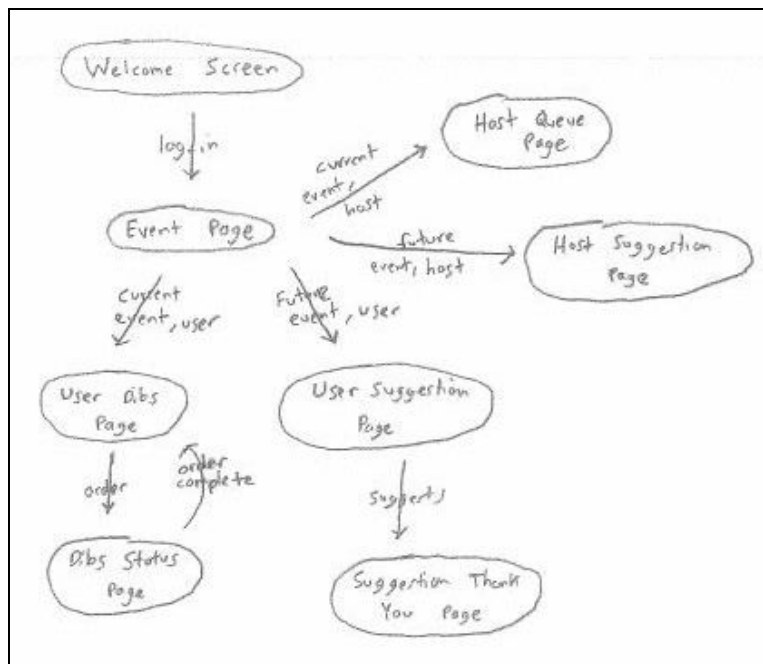 Welcome Screen
log in
Event Page
current
event,
host
Host Queue
Page
future
event, host
Host Suggestion
Page
current
event, user
Future
event, user
User Dibs
Page
User Suggestion
Page
order
order
complete
suggests
Dibs Status
Page
Suggestion Thank
You Page